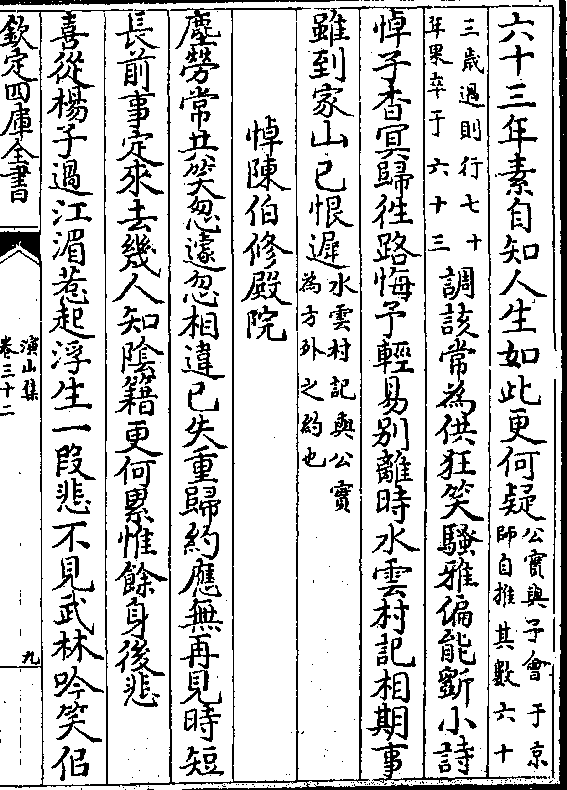 六十三年素自知人生如此更何疑公實與予會于京師自推其數六十
三歲過則行七十年果卒于六十三調該常為供狂笑騷雅偏能斵小詩
悼子杳冥歸徃路悔予輕易別離時水雲村記相期事
雖到家山已恨遲水雲村記與公實為方外之約也
悼陳伯修殿院
塵勞常共笑忽遽忽相違已失重歸約應無再見時短
長前事定來去幾人知陰籍更何累惟餘身後悲
喜從楊子過江湄惹起浮生一段悲不見武林吟笑侣
欽定四庫全書
演山集
卷三十二
九